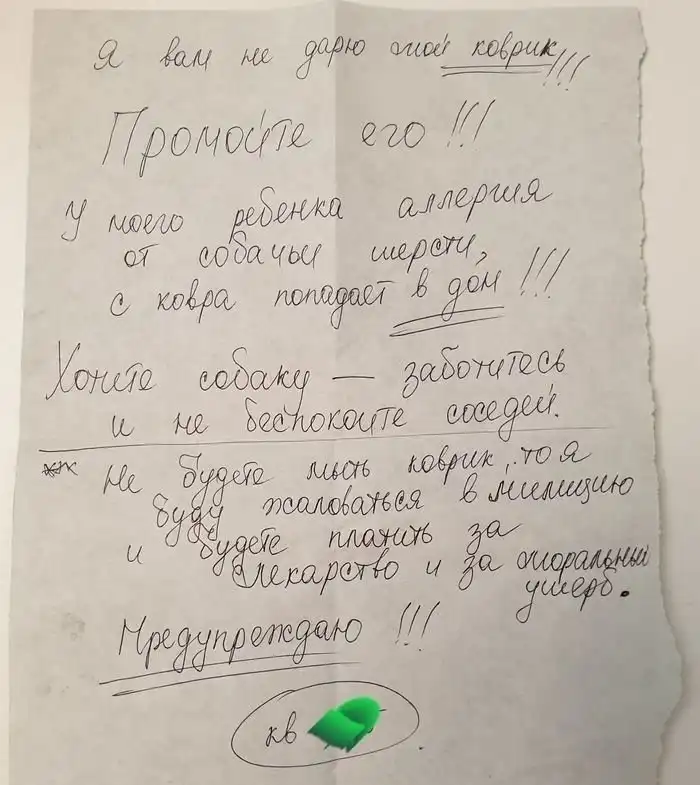 Я вам не дарю мой коврик!!!
Промойте его!!!
У моего ребенка аллергия
от собачьи шерсти,
с ковра попадает в дом!!!
Хотите собаку — заботитесь
и не беспокоите соседей.
Не будете мыть коврик, то я
буду жаловаться в милицию
и будете платить за
лекарство и за моральный
ущерб.
Предупреждаю!!!
кв